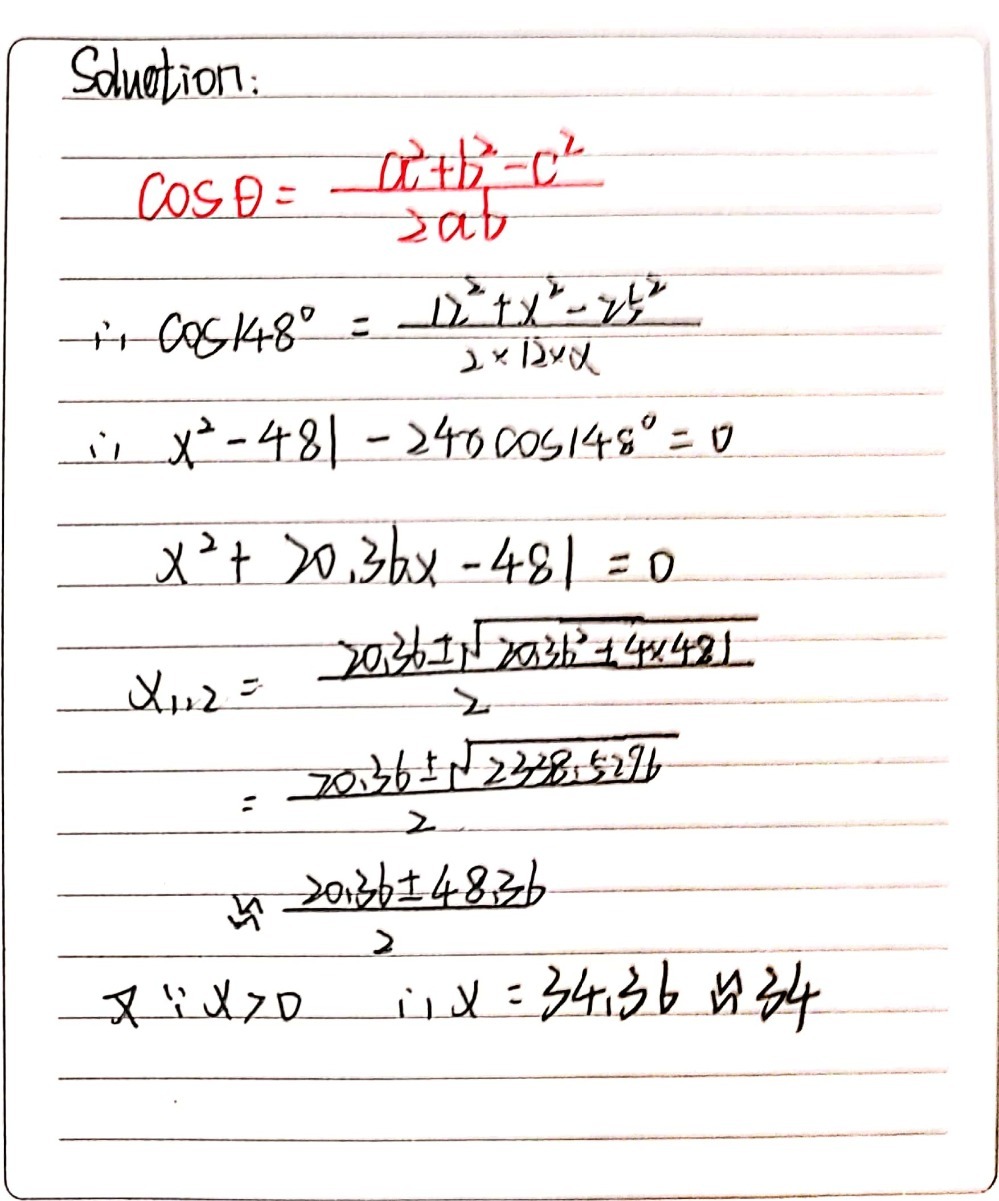 Soluotion:
cosθ = \frac{a²+b²-c²}{2ab}
∴ cos148° = \frac{12²+x²-25²}{2×12×x}
∴ x²-481-240cos148°=0
x²+20.36x-481=0
x₁,₂ = \frac{20.36±\sqrt{20.36²+4×481}}{2}
= \frac{20.36±\sqrt{2338.5296}}{2}
≈ \frac{20.36±48.36}{2}
∵ x>0 ∴ x=34.36≈34